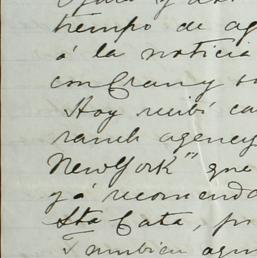 tiempo de ag
á la noticia
con Crany
Hoy recibí ca
ranch agency
New York" que
yá recomenda
Sta Cata, pr
Tambien agu